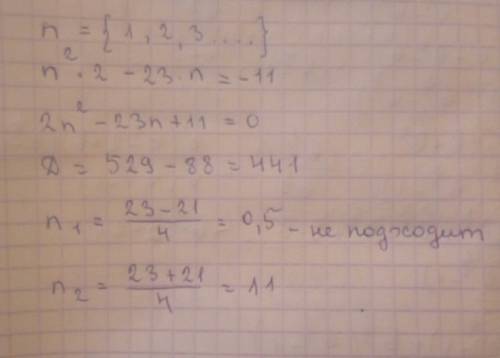 n = {1, 2, 3 ....}
n² · 2 - 23 · n = -11
2n² - 23n + 11 = 0
D = 529 - 88 = 441
n₁ = (23 - 21)/4 = 0,5 - не подходит
n₂ = (23 + 21)/4 = 11